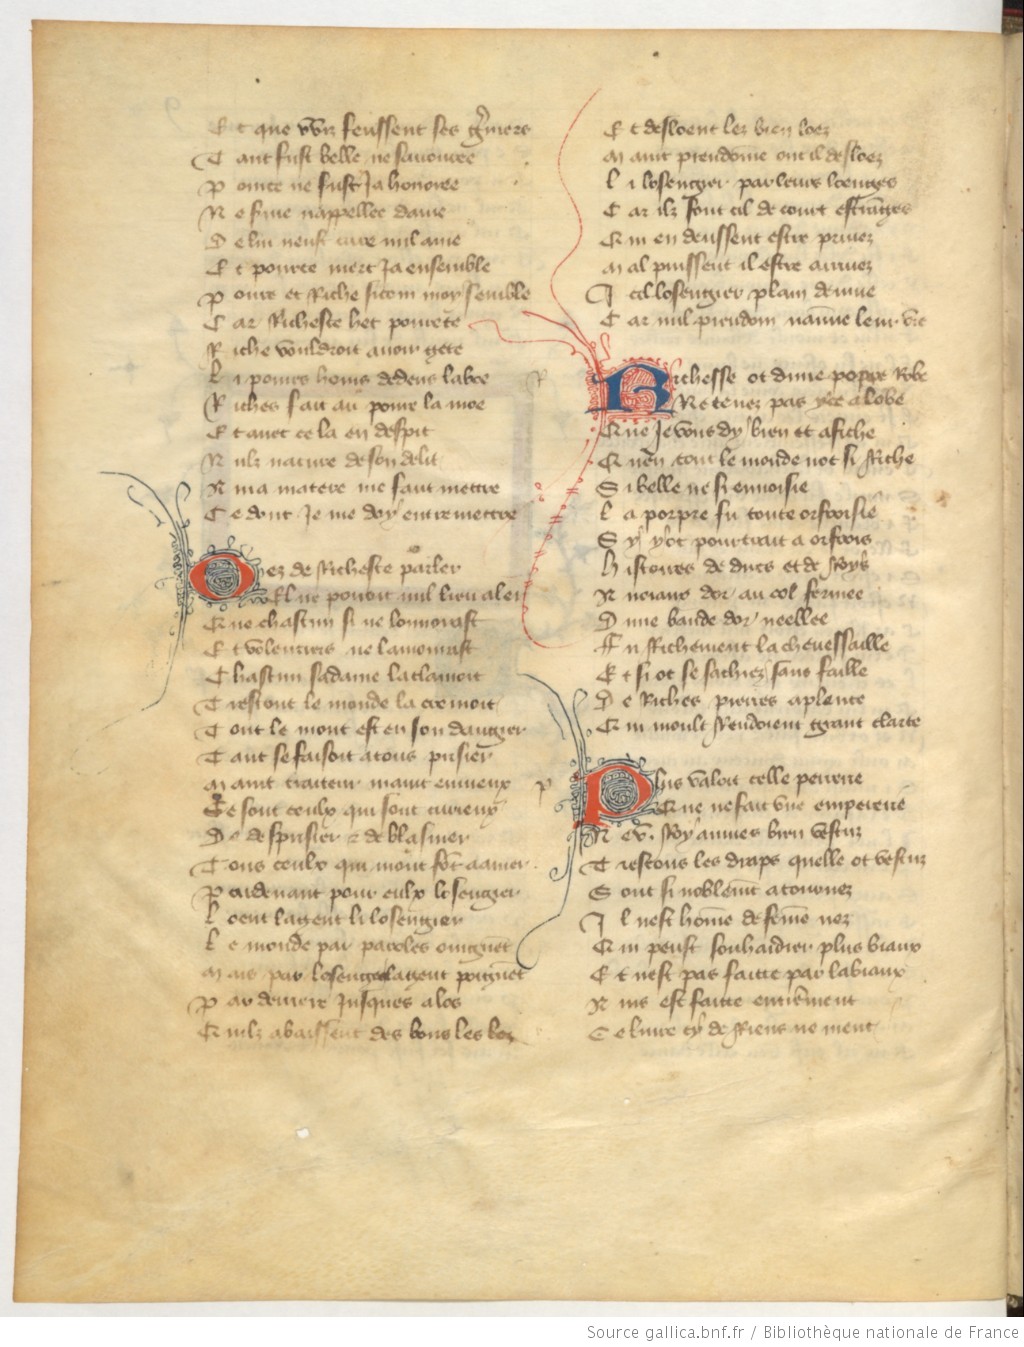 Et que vviz feussent ses g̃niers
Tant fust belle ne savouree
Poure ne fust Ja honoree
Ne fame nappellee dame
De lui neust cure nul ame
Et poure mert Ja ensemble
Poure et Riche sicom moy semble
Car Richesse het pourete
Riche vouldroit avoir gete
Li poures homs dedens labre
Riches fait au poure la moe
Et avec ce la en despit
Nulz nature de son delit
Nma matere me faut mettre
Ce dont Je me doy entremettre
Oez de Richesse parler
Quel ne pouoit nul lieu aler
Que chascun si ne lonnorast
Et voulentiers ne lamourast
Chascun sa dame la clamoit
Trestout le monde la cremoit
Tout le mont est en son dangier
Tant se faisoit a tous prisier
Maint traiteur maint enuieux
Ce sont ceulx qui sont curieux
De desprisier et de blasmer
Tous ceulx qui mont fõt a amer
Par deuant pour eulx losengier
Loent la gent li losengier
Le monde par paroles oinguẽt
Mais par losenges la gent poignẽt
Par derriere Jusques a los
Quilz abaissent des bons les loz
Et desloent les bien loez
Maint preudõme ont il desloez
Li losengier par leurs loenges
Car ilz font cil de court estrãges
Qui en deussent estre priuez
Mal puissent il estre arriuez
Icil losengier plain denuie
Car nul preudom nãime leur vie
Richesse ot dune porpre Robe
Ne tenez pas yce a lobe
Que Je vous dy bien et afiche
Quen tout le monde not si Riche
Si belle ne si enuoisie
La porpre fu toute orfroisie
Sy y ot pourtrait a orfrois
Histoires de ducs et de Roys
Noians dor au col fermee
Dune bande dor neellee
Fu Richement la cheuessaille
Et si ot se sachiez sans faille
De Riches pierres a plente
Qui moult Rendoient grant clarte
Plus valoit celle perrerie
Que ne fait vne emperere
Ne x. Roy aumes bien vestuz
Trestous les draps quelle ot vestuz
Sont si noblemẽt atournez
Il nest hõme de fẽme nez
Qui peust souhaidier plus biaux
Et nest pas faitte par labiaux
Nins est faitte entierement
Ce liure cy de Riens ne ment